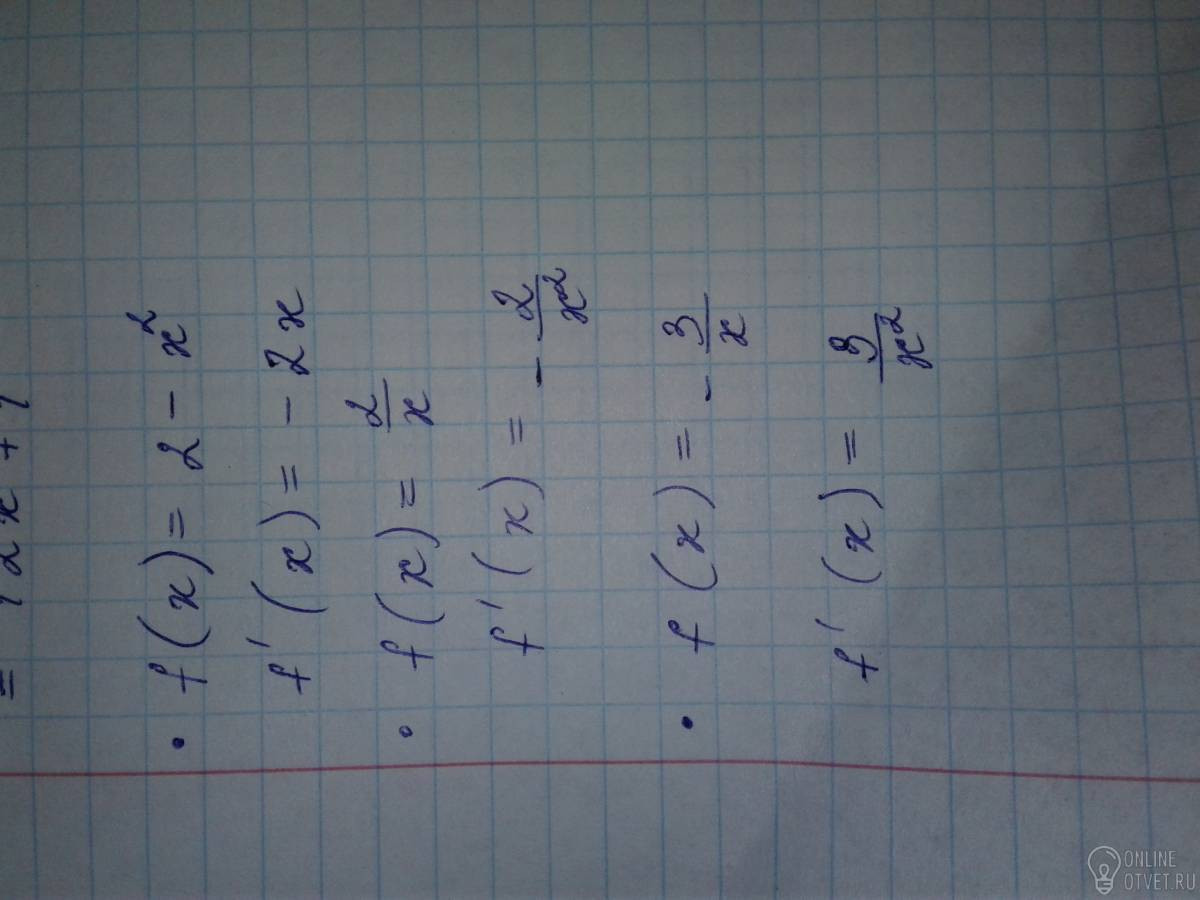 = 12x + 1
• f(x) = 2 - x²
f'(x) = - 2x
• f(x) = 2/x
f'(x) = - 2/x²
• f(x) = - 3/x
f'(x) = 3/x²
ONLINE
OTVET.RU